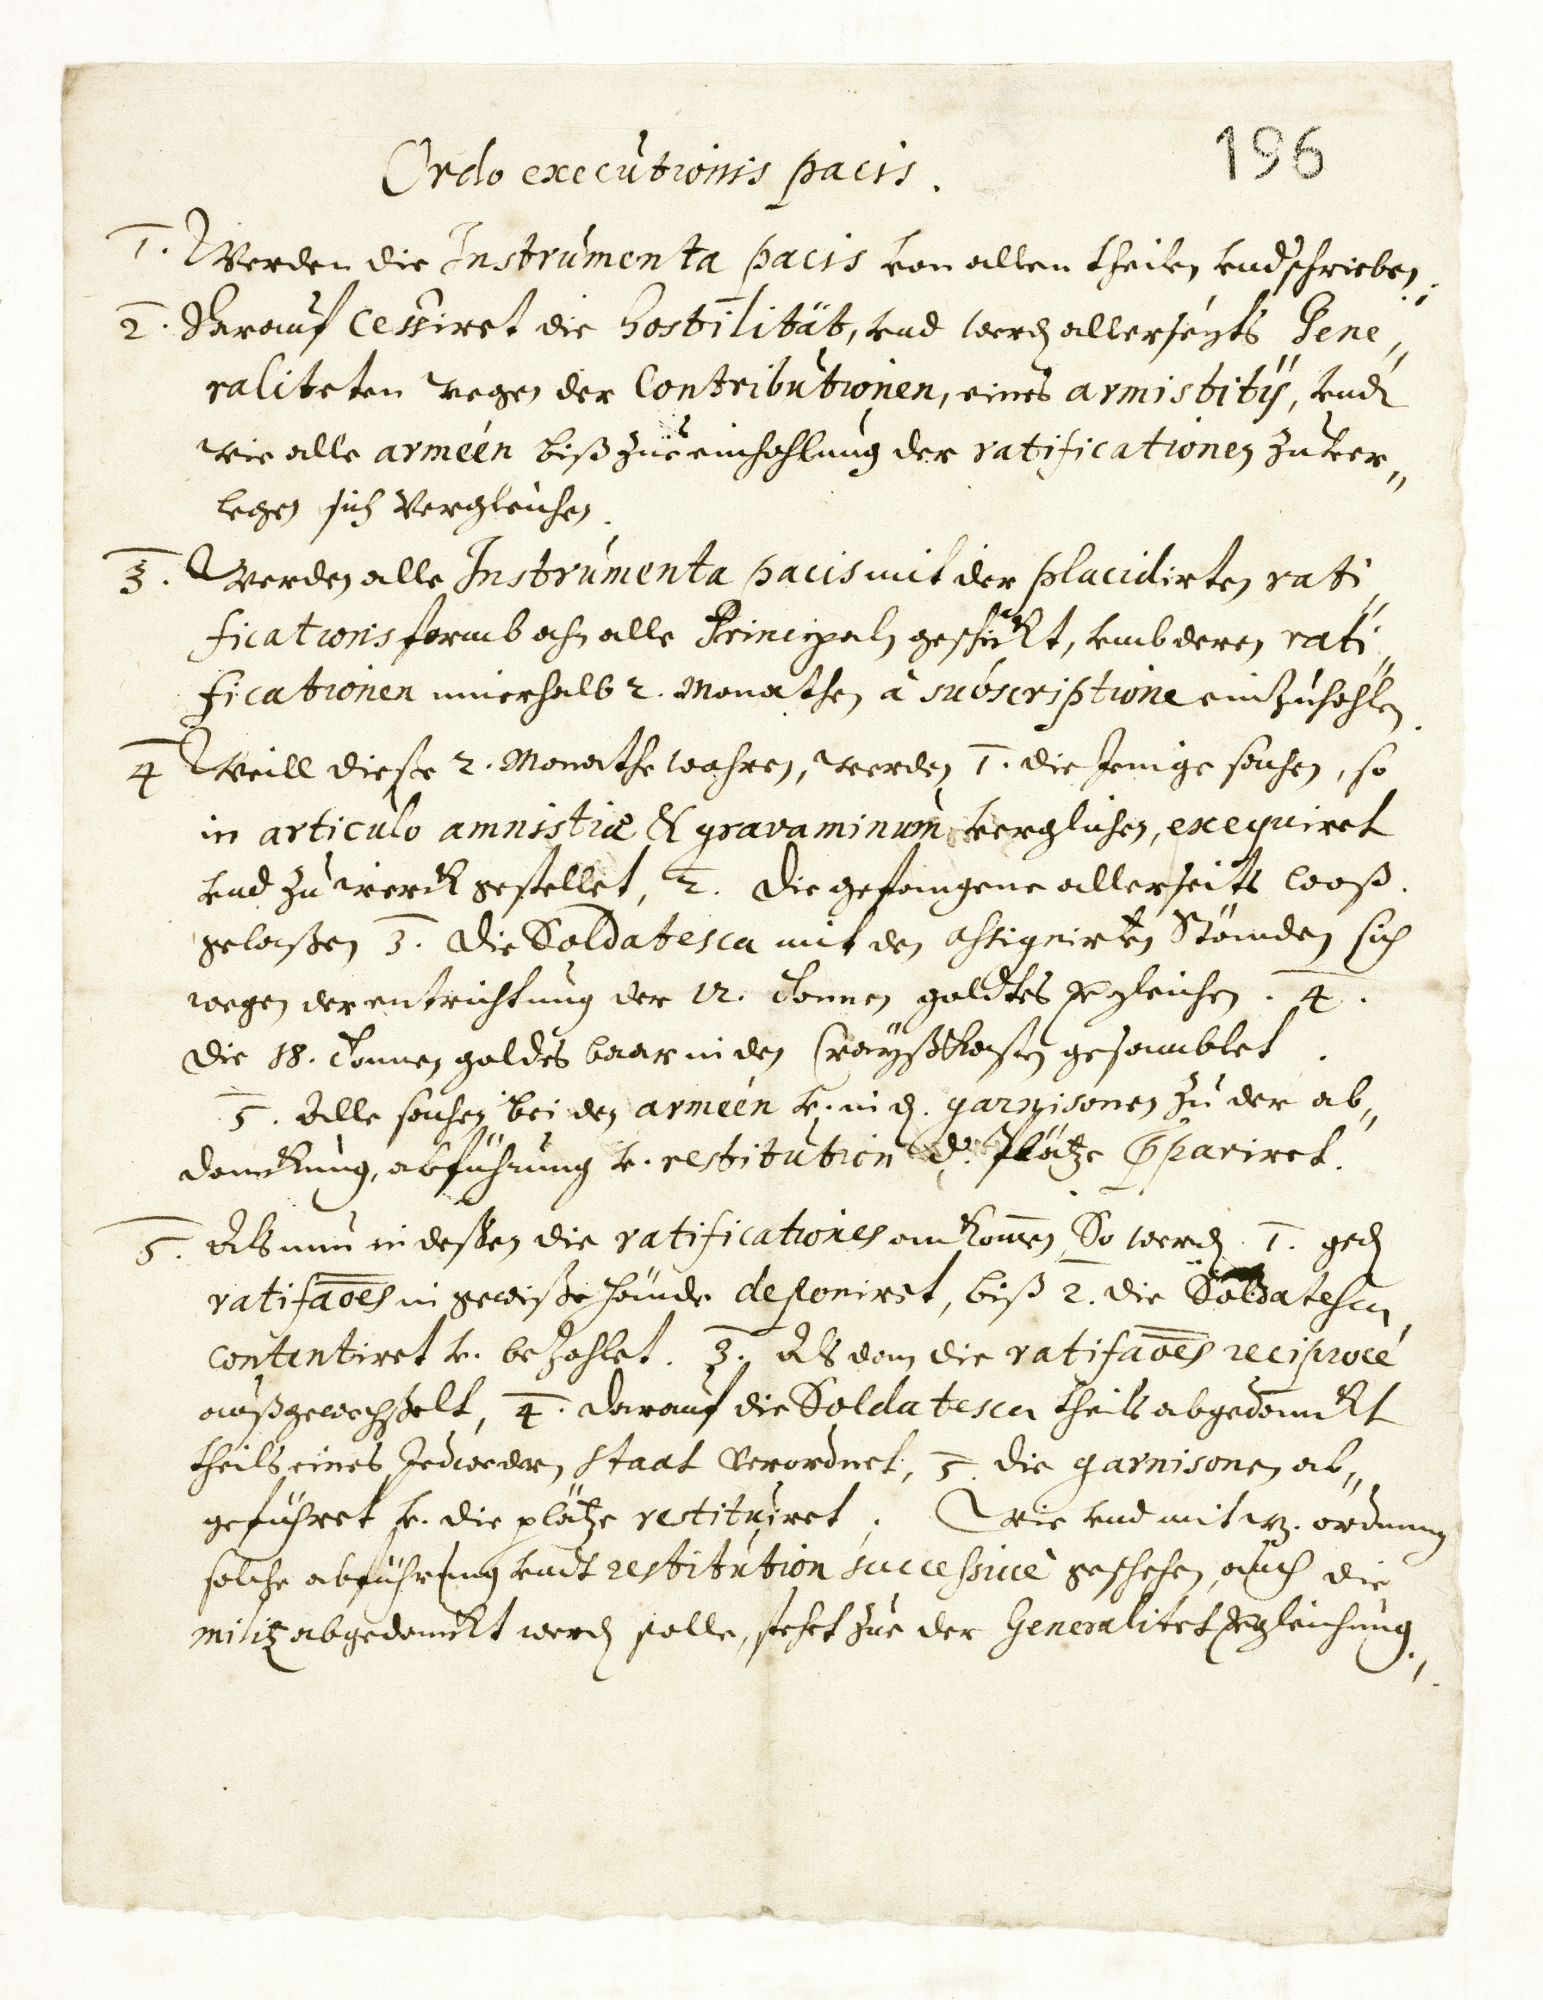 Ordo executionis pacis.
196
1. Werden die Instrumenta pacis von allen theilen undschrieben.
2. Darauf cessiret die hostilität, vnd werden allerseyts Gene„
raliteten wegen der Contributionen, eines armistitÿ, vndt
wie alle arméen biß zue einhohlung der ratificationen zu ver„
legen sich Vergleichen.
3. Werden alle Instrumenta pacis mit der placidirten rati„
fications formb ahn alle Principaln geschickt, vmb deren rati„
ficationen innerhalb 2. Monathen à subscriptione einzuhohlen.
4 Weill dieße 2. Monathe wahren, werden 1. die Jenige sachen, so
in articulo amnistiæ & gravaminum verglichen, exequiret
vnd zu werck gestellet, 2. die gefangene allerseits looß
gelaßen 3. die Soldatesca mit den assignirten Ständen sich
wegen der entrichtung der 12. Tonnen goldtes vergleichen. 4.
die 18. Tonnen goldes baar in den Craÿßkasten gesamblet.
5. Alle sachen bei den arméen v. in d. garnisonen zu der ab„
danckung, abführung v. restitution d. plätze præpariret.
5. Als nun in deßen die ratificationes ankom̄en, So werden 1. ged.
ratifāoēs in gewiße hände deponiret, biß 2. die Soldatesca
contentiret v. bezahlet. 3. Als dan die ratifāoēs reciprocè
außgewechßelt, 4. darauf die Soldatesca theils abgedanckt
theils eines Jedweden staat verordnet, 5. die garnisonen ab„
geführet v. die plätze restituiret. Wie vnd mit wz. ordnung
solche abführung vndt restitution successivè geschehen, auch die
militz abgedanckt werden solle, stehet zue der Generalitet vergleichung.